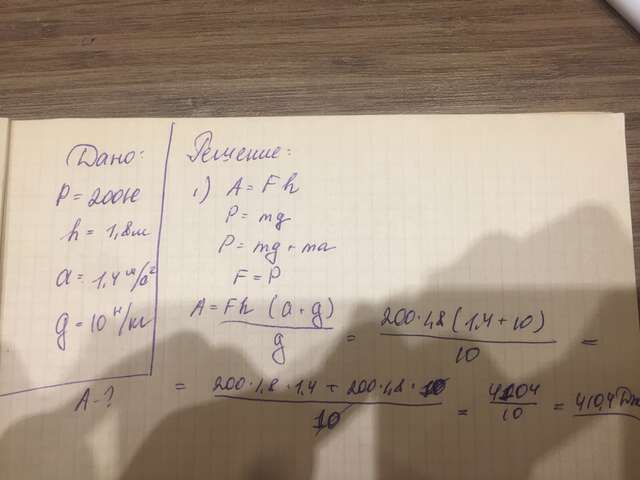 Дано:
P = 200Н
h = 1,8м
a = 1,4 м/с²
g = 10 н/кг
A - ?
Решение:
1) A = F h
P = mg
P = mg + ma
F = P
A = Fh (a + g) / g = 200·1,8 (1,4 + 10) / 10 =
= 200·1,8·1,4 + 200·1,8·10 / 10 = 4104 / 10 = 410,4 Дж